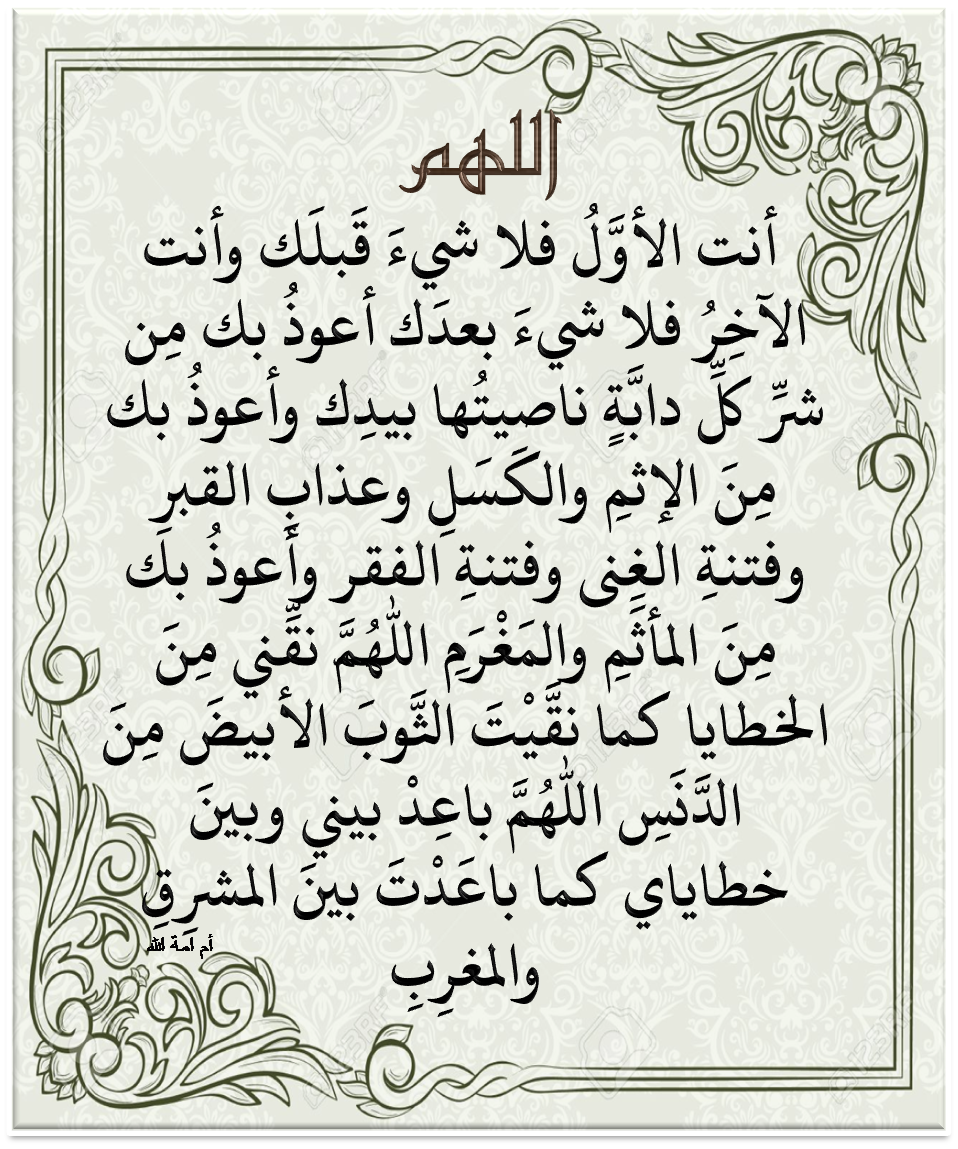 اللهم
أنت الأوَّلُ فلا شيءَ قَبلَك وأنت
الآخِرُ فلا شيءَ بعدَك أعوذُ بك مِن
شرِّ كلِّ دابَّةٍ ناصيتُها بيدِك وأعوذُ بك
مِنَ الإثمِ والكَسَلِ وعذابِ القبرِ
وفتنةِ الغِنى وفتنةِ الفقر وأَعوذُ بك
مِنَ المأثَمِ والمَغْرَمِ اللَّهُمَّ نقِّني مِنَ
الخطايا كما نقَّيْتَ الثَّوبَ الأبيضَ مِنَ
الدَّنَسِ اللَّهُمَّ باعِدْ بيني وبينَ
خطاياي كما باعَدْتَ بينَ المشرِقِ
أم أمة الله
والمغرِبِ
123RF